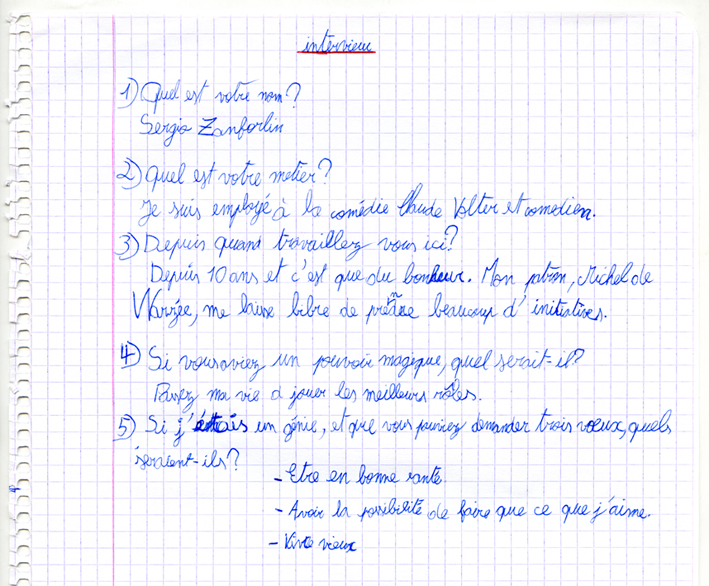 interview
1) Quel est votre nom?
Sergio Zanforlin
2) Quel est votre metier?
Je suis employé à la comédie Claude Volter et comedien.
3) Depuis quand travaillez vous ici?
Depuis 10 ans et c'est que du bonheur. Mon patron, Michel de
Warzée, me laisse libre de prendre beaucoup d'initiatives.
4) Si vous aviez un pouvoir magique, quel serait-il?
ma vie a jouer les meilleurs rôles.
5) Si j'étais un génie, et que vous pouviez demander trois vœux, quels
seraient-ils?
- Etre en bonne santé
- Avoir la possibilité de faire que ce que j'aime.
- Vivre vieux